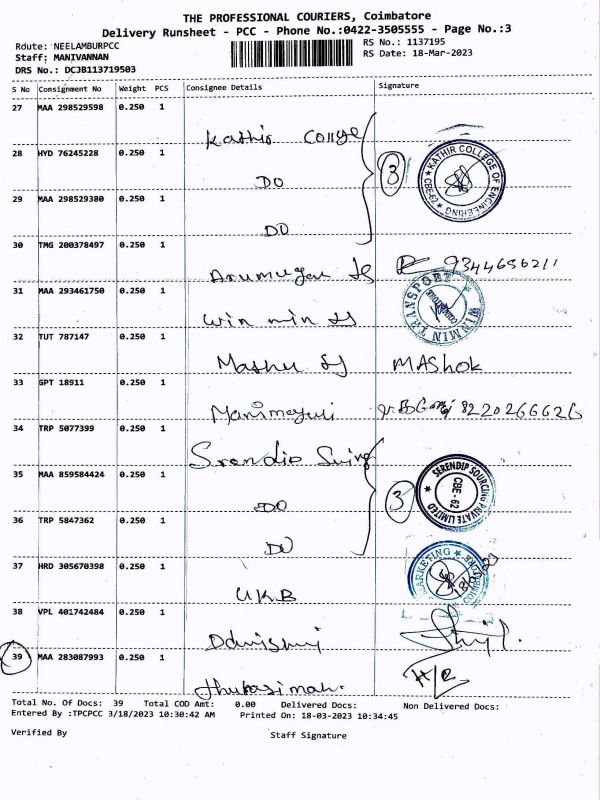 THE PROFESSIONAL COURIERS, Coimbatore
Delivery Runsheet - PCC - Phone No.:0422-3505555 - Page No.:3
Route: NEELAMBURPCC
RS No.: 1137195
Staff: MANIVANNAN
RS Date: 18-Mar-2023
DRS No.: DCJB113719503
S No Consignment No Weight PCS Consignee Details Signature
27 MAA 298529598 0.250 1
Kathir College
28 HYD 76245228 0.250 1
DO
3
KATHIR COLLEGE OF ENGINEERING CBE-62
29 MAA 298529380 0.250 1
DO
30 TMG 200378497 0.250 1
9344656211
31 MAA 293461750 0.250 1
Win min
WINMIN TRANSPORT
32 TUT 787147 0.250 1
MAShok
33 GPT 18911 0.250 1
8220266626
34 TRP 5077399 0.250 1
35 MAA 859584424 0.250 1
DO
3
SERENDIP SOURCING PRIVATE LIMITED CBE - 62
36 TRP 5847362 0.250 1
DO
37 HRD 305670398 0.250 1
UKB
38 VPL 401742484 0.250 1
39 MAA 283087993 0.250 1
Total No. Of Docs: 39 Total COD Amt: 0.00 Delivered Docs: Non Delivered Docs:
Entered By :TPCPCC 3/18/2023 10:30:42 AM Printed On: 18-03-2023 10:34:45
Verified By Staff Signature